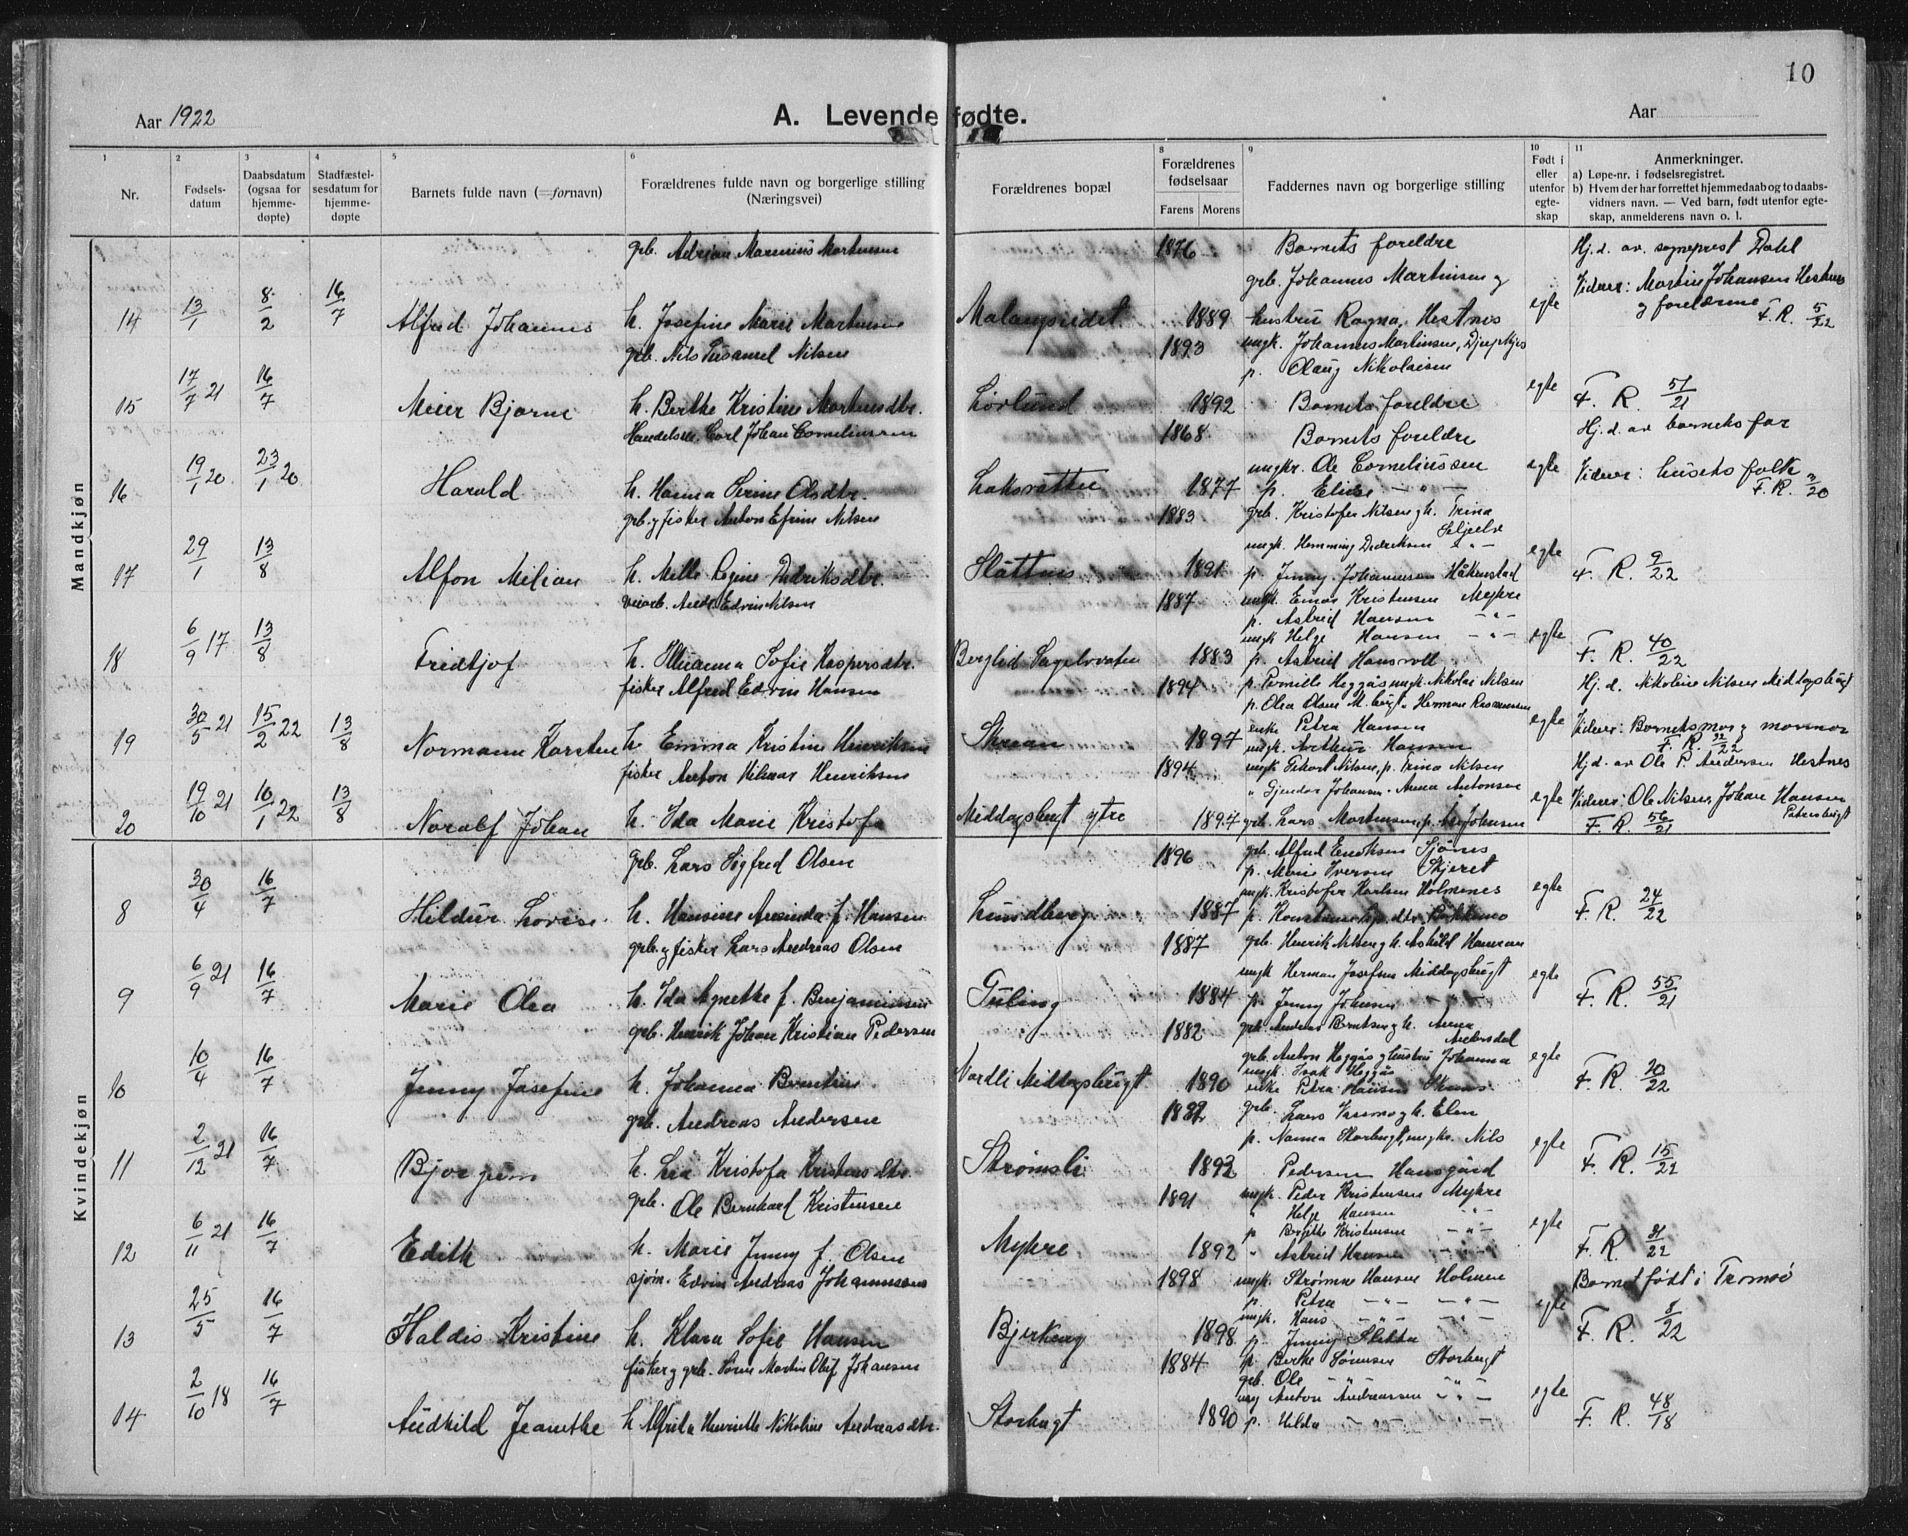 10
Aar 1922
A. Levendefødte.
Aar
1 2 3 4 5 6 7 8 9 10 11
Nr.
Fødsels-
datum
Daabsdatum
(ogsaa for
hjemme-
døpte)
Stadfæstel-
sesdatum for
hjemme-
døpte
Barnets fulde navn (=fornavn)
Forældrenes fulde navn og borgerlige stilling
(Næringsvei)
Forældrenes bopæl
Forældrenes
fødselsaar
Farens Morens
Faddernes navn og borgerlige stilling
Født i
eller
utenfor
egte-
skap
Anmerkninger.
a) Løpe-nr. i fødselsregistret.
b) Hvem der har forrettet hjemmedaab og to daabs-
vidners navn. — Ved barn, født utenfor egte-
skap, anmelderens navn o. l.
Mandkjøn
grb. Adrian Marinius Martensen 1876 Barnets foreldre Hj.d. av sogneprest Dahl
grb. Johannes Martinsen og Vidner: Martin Johansen Hestnes
14 13/1 8/2 16/7 Alfred Johannes h. Josefine Marie Martensen 1889 hustru Ragna, Hestnes egte og foreldrene F.R. 5/22
grb. Nils Nilsen 1893 ungk. Johannes Martinsen,
p. Olaug Nikolaisen
15 17/7 21 16/7 Meier Bjarne h. Berthe Kristine Mortensdtr. Lövlund 1892 Barnets foreldre egte F. R. 51/21
Handelsm. Carl Johan Corneliussen 1868 Barnets foreldre Hj.d. av barnets far
16 19/1 20 23/1 20 Harald h. Hanna Serine Olsdtr. Laksvatten 1877 ungkr. Ole Corneliussen egte Vidner: husets folk
p. Elise — " — F.R. 2/20
grb. og fisker Anton Efrim Nilsen 1883 grb. Kristofer Nilsen og h. Trina
ungk. Hemming Dedriksen — " —
17 29/1 13/8 Alfon Milian h. Mille Regine Didriksdtr. Slåttnes 1891 p. Jenny Johannesen Håkenstad egte F. R. 9/22
veiarb. Andr. Edvin Nilsen 1887 ungk. Einar Kristensen Myhre
p. Astrid Hansen — " —
ungk Helge Hansen — " —
18 6/9 17 13/8 Fridtjof h. Sofie Kaspersdtr. Berglid Sagelvvatn 1883 p. Astrid Hansvoll egte F. R. 40/22
fisker Alfred Edvin Hansen 1894 p. Pernille Heggås ungk. Nikolai Nilsen Hj. d. Nikoline Nilsen Middagsbugt
p. Olea Olsen M.bugt " Herman Rasmussen
19 30/5 21 15/2 22 13/8 Normann Karsten h. Emma Kristine Henriksen 1897 enke Petra Hansen egte Vidner: Barnets mor og mormor
ungk. Arthur Hansen F. R. 22/22
fisker Anton Hilmar Henriksen 1894 ungk Nilsen, p. Trina Nilsen Hj d. av Ole P. Andersen Hestnes
" Johansen " Anna Antonsen
20 19/10 21 10/1 22 13/8 Noralf Johan h. Ida Marie Kristofa Middagsbugt ytre 1897 grb. Lars Mortensen, p. Johnsen egte Vidner: Ole Nilsen, Johan Hansen
F. R. 56/21
Kvindekjøn
grb. Lars Sigfred Olsen 1896 grb. Alfred Enoksen
p. Marie Iversen Skjeret
ungk. Kristofer Karlsen Holmenes
8 30/4 16/7 Hildur Lovise h. Hansine Amanda f. Hansen Lundberg 1887 egte F. R. 24/22
grb. og fisker Lars Andreas Olsen 1887 grb. Henrik Nilsen og h. Hansen
ungk Herman Josefsen Middagsbugt
9 6/9 21 16/7 Marie Olea h. Ida Agnethe f. Benjaminsen 1884 p. Jenny Johnsen — " — egte F. R. 55/21
grb. Henrik Johan Kristian Pedersen 1882 grb. Andreas Berntsen og h. Anna
Andersdal
grb. Anton Heggås og hustru Johanna
ungk. Isak Heggås
10 10/4 16/7 Jenny Josefine h. Johanna Berntsen Nordli Middagsbugt 1890 enke Petra Hansen egte F. R. 20/22
grb. Andreas Andersen 1882 grb. Lars og h. Elen
p. Nanna Storbugt, ungkr. Nils
11 2/12 21 16/7 Bjorgun h. Lea Kristofa Kristensdtr. Strømsli 1892 Pedersen Hansgård egte F. R. 15/22
grb. Ole Bernhard Kristensen 1891 ungk. Peder Kristensen Myhre
" Helge Hansen — " —
p Birgitte Kristensen — " —
12 6/11 21 16/7 Edith h. Marie Jenny f. Olsen Myhre 1892 " Astrid Hansen — " — egte F. R. 31/22
sjøm. Edvin Andreas Johannessen 1898 ungk. Hansen Holmen Barnet født i Tromsö
p. Petra — " — — " —
ungk. Hans — " — — " —
13 25/5 16/7 Haldis Kristine h. Klara Sofie Hansen Bjerkeng 1898 p. Jenny Sletta egte F. R. 8/22
fisker og grb. Sören Martin Olif Johansen 1884 p. Berthe Sörensen Storbugt
grb. Ole — " — " —
ung Anton Andreassen — " —
14 2/10 18 16/7 Audhild Jeanethe h Alfrida Henriette Nikoline Andreasdtr. Storbugt 1890 p. Hilda — " — — " — egte F. R. 48/18